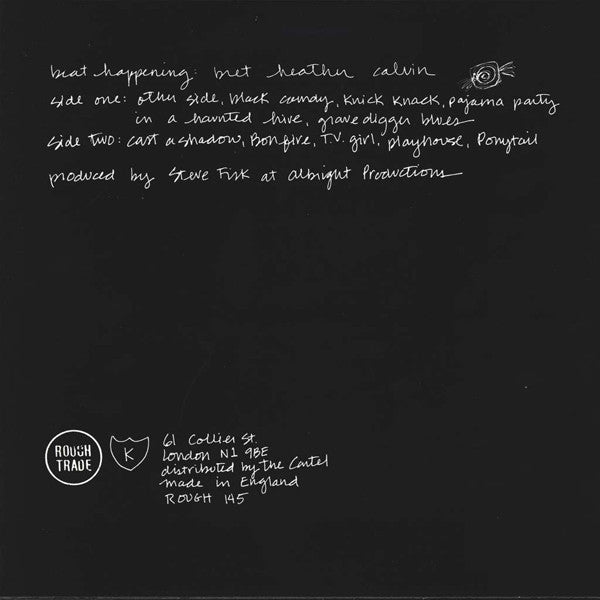 beat happening: bret heather calvin
side one: other side, black candy, knick knack, pajama party
in a haunted hive, gravedigger blues
side two: cast a shadow, Bonfire, T.V. girl, playhouse, Ponytail
produced by Steve Fisk at Albright Productions
ROUGH
TRADE
K
61 Collier St.
London N1 9BE
distributed by the Cartel
made in England
ROUGH 145